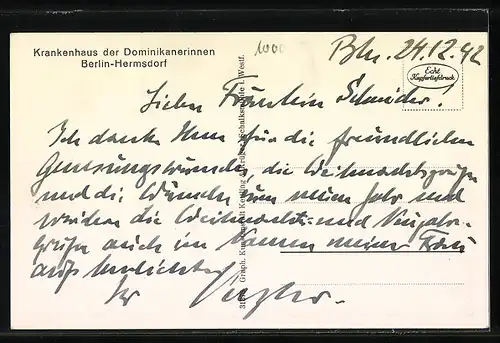 Krankenhaus der Dominikanerinnen
Berlin-Hermsdorf
1000
Bln. 24.12.42
Echt
Kupfertiefdruck
Lieben Fräulein Schneider!
Ich danke Ihnen für die freundlichen
Genesungswünsche, die Weihnachtsgrüße
und die Wünsche zum neuen Jahr und
die Weihnachts- und Neujahrs-
grüße auch im Namen meiner Frau
auf's herzlichste
Ihr
Graph. Kunstanstalt i. Westf.